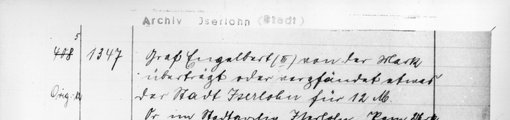 Archiv Iserlohn (Stadt)
5
408 1347 Graf Engelbert (II) von der Mark
überträgt oder verpfändet etwas
Orig. der Stadt Iserlohn für 12 M.
Or im Stadtarchiv Iserlohn